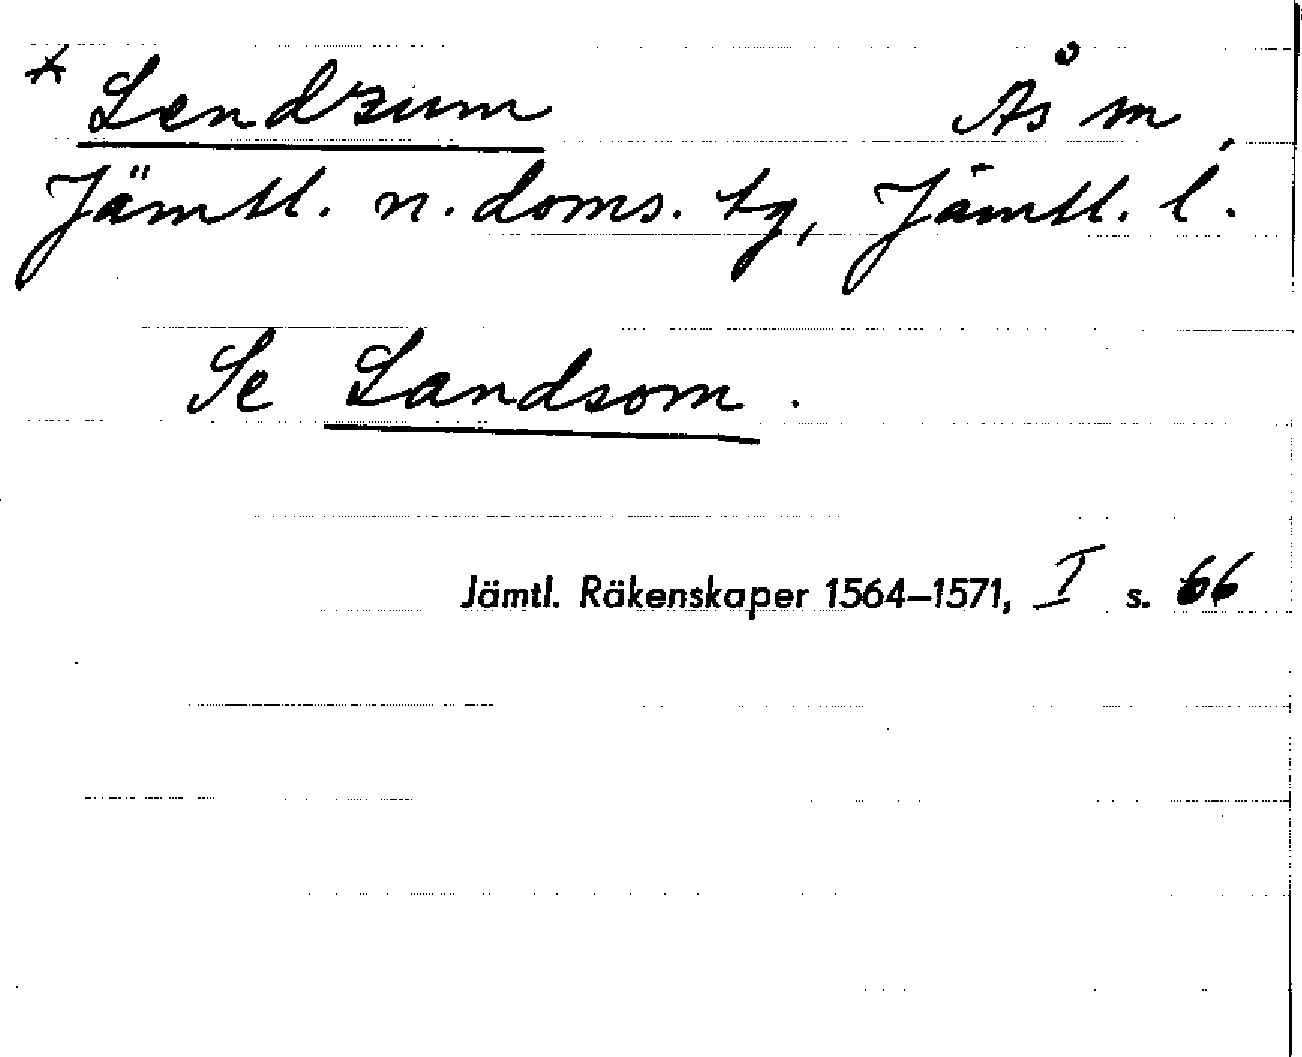 * Lendzum Ås sn,
Jämtl. n. doms. tg, Jämtl. l.
Se Landsom.
Jämtl. Räkenskaper 1564–1571, I s. 66